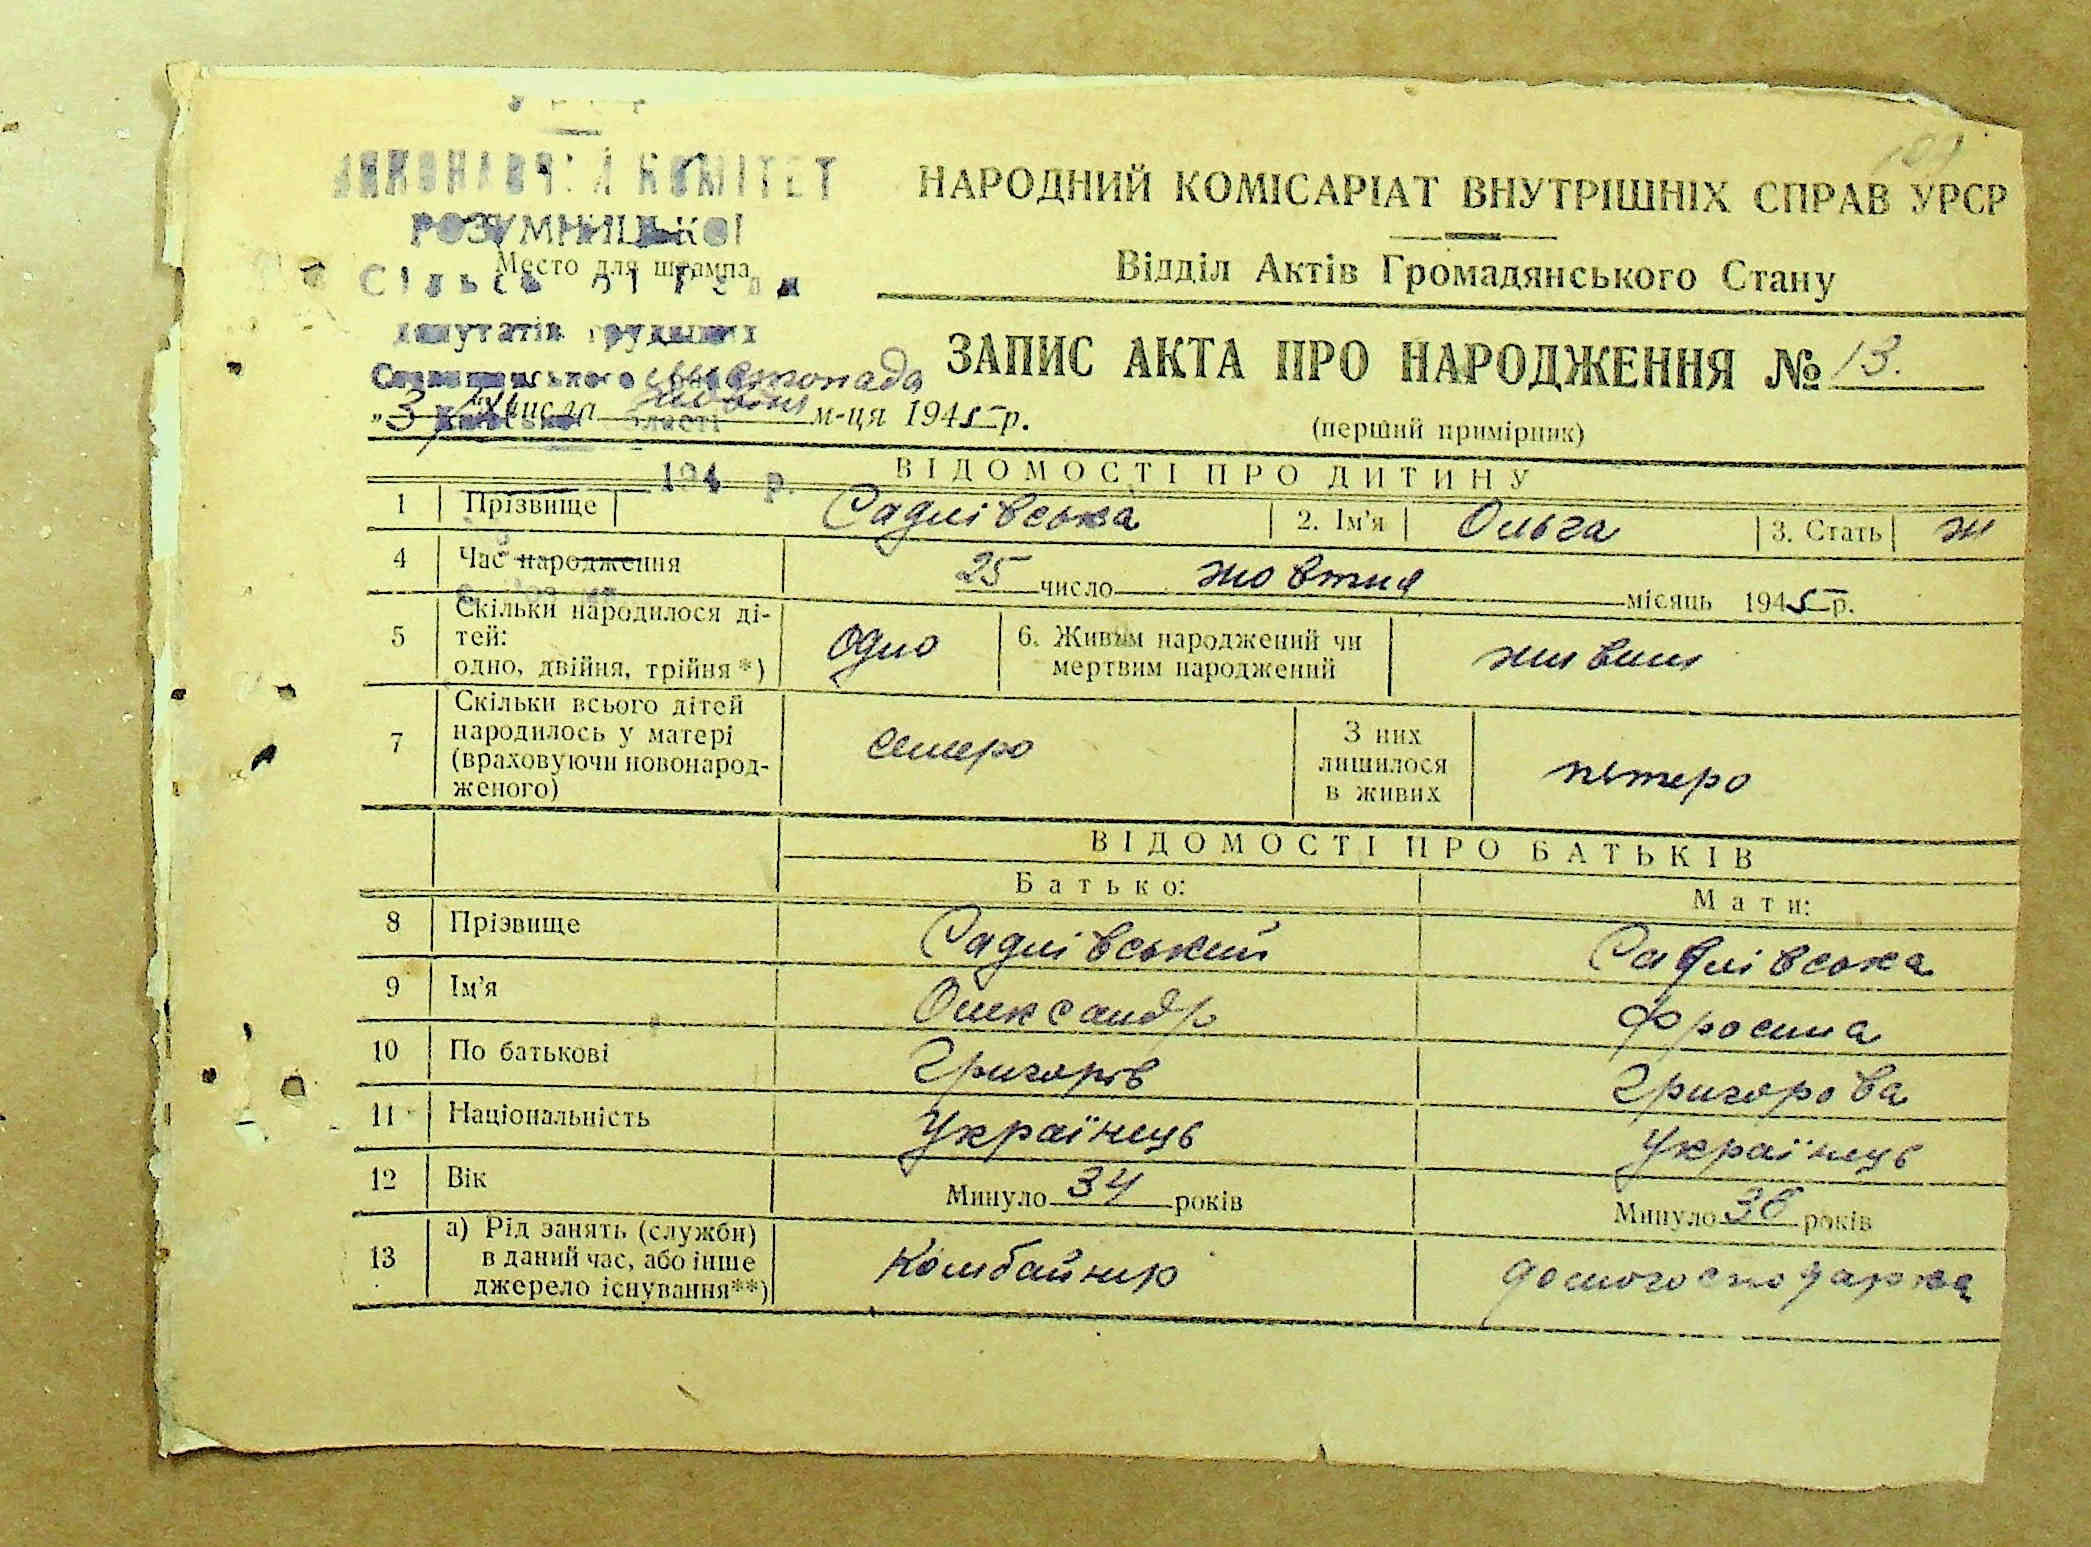 101
ВИКОНАВЧИЙ КОМІТЕТ
РОЗУМНИЦЬКОЇ
Место для штампа
депутатів трудящих
листопада
„3“ числа жовтня м-ця 1945 р.
194 р.
НАРОДНИЙ КОМІСАРІАТ ВНУТРІШНІХ СПРАВ УРСР
Відділ Актів Громадянського Стану
ЗАПИС АКТА ПРО НАРОДЖЕННЯ № 13.
(перший примірник)
ВІДОМОСТІ ПРО ДИТИНУ
1 Прізвище Садлівська 2. Ім'я Ольга 3. Стать ж
4 Час народження 25 число жовтня місяць 1945 р.
5 Скільки народилося ді-
тей:
одно, двійня, трійня*) одно 6. Живим народжений чи
мертвим народжений живим
7 Скільки всього дітей
народилось у матері
(враховуючи новонарод-
женого) семеро З них
лишилося
в живих пятеро
ВІДОМОСТІ ПРО БАТЬКІВ
Батько: Мати:
8 Прізвище Садлівський Садлівська
9 Ім'я Олександр Фросина
10 По батькові Григорів Григорова
11 Національність Українець Українець
12 Вік Минуло 34 років Минуло 38 років
13 а) Рід занять (служби)
в даний час, або інше
джерело існування**) Комбайнир домогосподарка